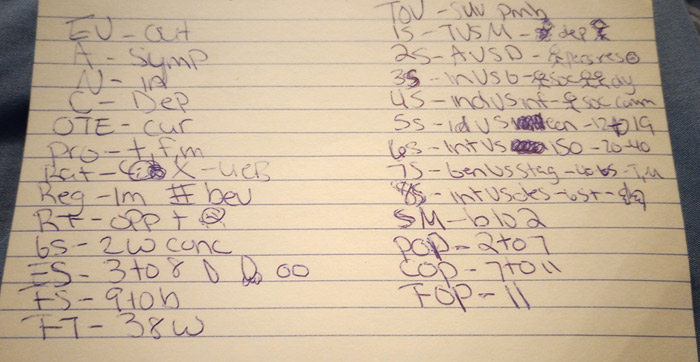 EV - out
A - Symp
N - id
C - Dep
OTE - cur
Pro - + fm
X - ueb
Reg - Im # beu
Rt - opp +
6s - 2w conc
ES - 3to8
FS - 9tob
FT - 38w
TOU - suv pmh
1S - TVSM - dep
2S - AVSD -
3S - inVsb -
4S - indVsinf - soc comm
5S - id VS con - 12to19
6s - IntVs ISO - 20-40
7S - genVsStag - 40 65 -
8S - intVsdes - 65+ -
SM - b102
POP - 2to7
COP - 7to11
FOP - 11